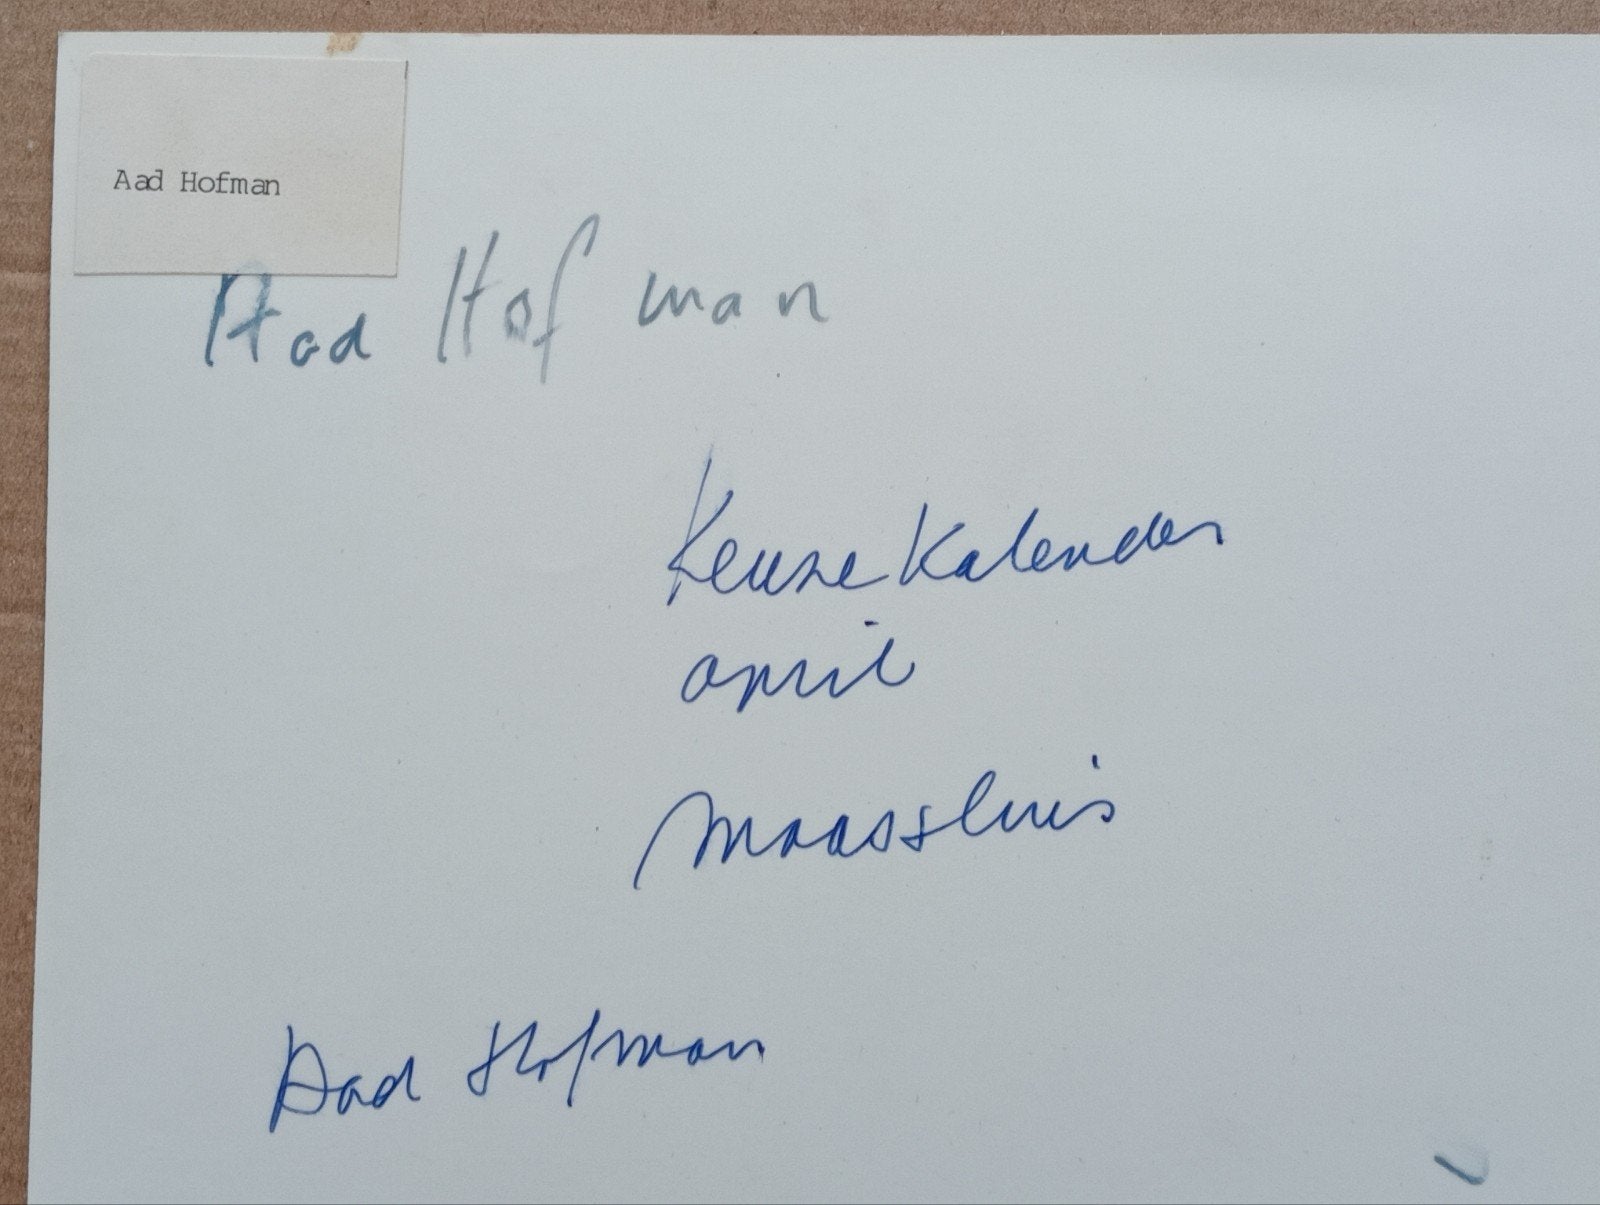 Aad Hofman
Aad Hofman
Keuze Kalender
april
Maassluis
Aad Hofman